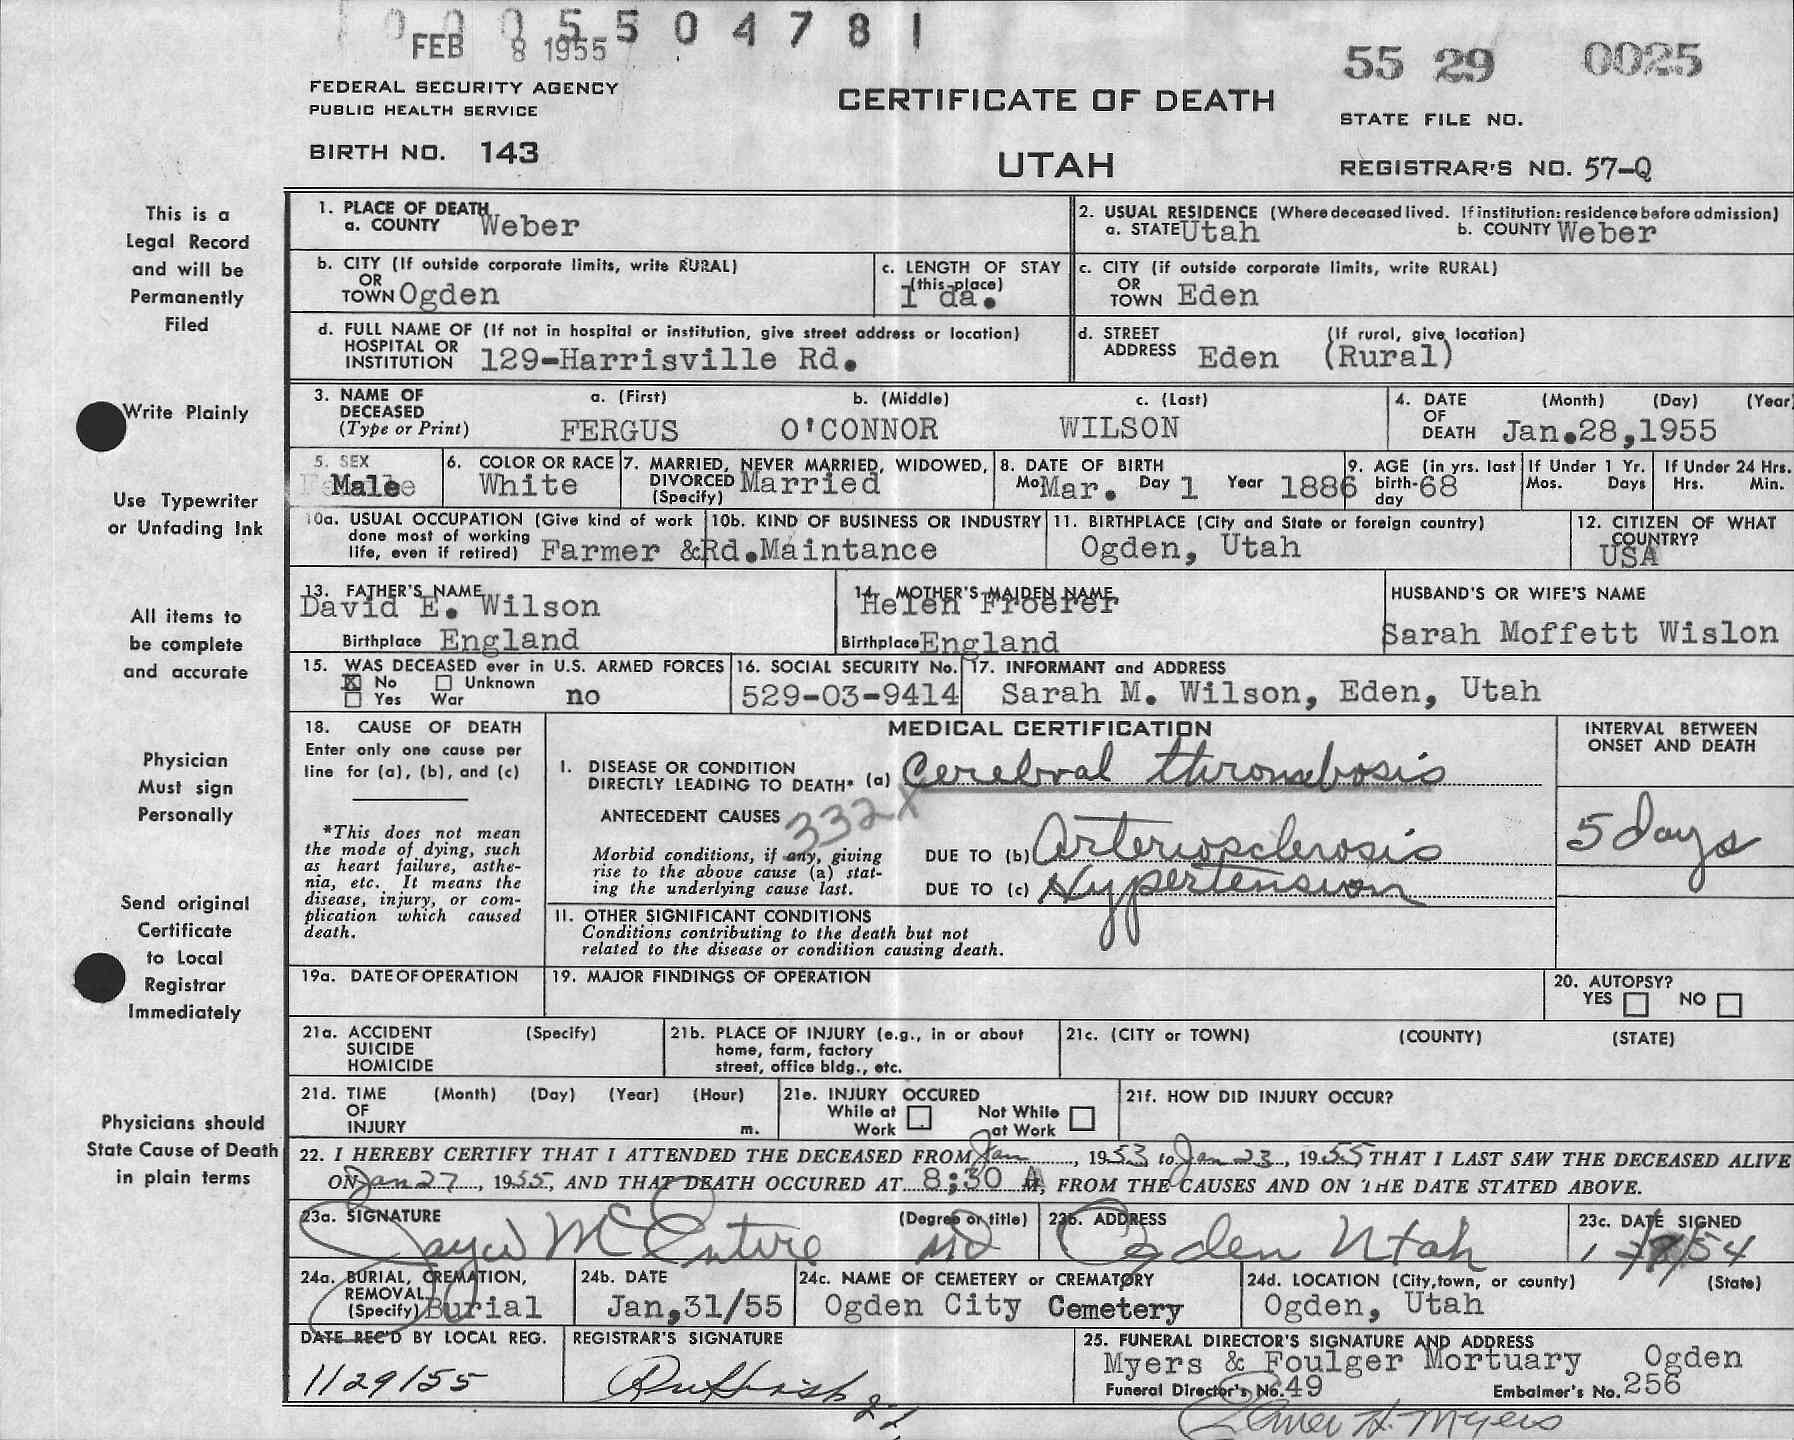 0 0 0 5 5 0 4 7 8 1
FEB 8 1955
55 29 0025
FEDERAL SECURITY AGENCY
PUBLIC HEALTH SERVICE
CERTIFICATE OF DEATH
STATE FILE NO.
BIRTH NO. 143
UTAH
REGISTRAR'S NO. 57-Q
This is a
Legal Record
and will be
Permanently
Filed
Write Plainly
Use Typewriter
or Unfading Ink
All items to
be complete
and accurate
Physician
Must sign
Personally
Send original
Certificate
to Local
Registrar
Immediately
Physicians should
State Cause of Death
in plain terms
1. PLACE OF DEATH
a. COUNTY Weber
2. USUAL RESIDENCE (Where deceased lived. If institution: residence before admission)
a. STATE Utah b. COUNTY Weber
b. CITY (If outside corporate limits, write RURAL)
OR
TOWN Ogden
c. LENGTH OF STAY
(this place)
1 da.
c. CITY (if outside corporate limits, write RURAL)
OR
TOWN Eden
d. FULL NAME OF (If not in hospital or institution, give street address or location)
HOSPITAL OR
INSTITUTION 129-Harrisville Rd.
d. STREET (If rural, give location)
ADDRESS Eden (Rural)
3. NAME OF
DECEASED
(Type or Print)
a. (First) b. (Middle) c. (Last)
FERGUS O'CONNOR WILSON
4. DATE (Month) (Day) (Year)
OF
DEATH Jan.28,1955
5. SEX
Male
6. COLOR OR RACE
White
7. MARRIED, NEVER MARRIED, WIDOWED,
DIVORCED Married
(Specify)
8. DATE OF BIRTH
Mo Mar. Day 1 Year 1886
9. AGE (in yrs. last
birth-
day 68
If Under 1 Yr.
Mos. Days
If Under 24 Hrs.
Hrs. Min.
10a. USUAL OCCUPATION (Give kind of work
done most of working
life, even if retired) Farmer &
10b. KIND OF BUSINESS OR INDUSTRY
Rd.Maintance
11. BIRTHPLACE (City and State or foreign country)
Ogden, Utah
12. CITIZEN OF WHAT
COUNTRY?
USA
13. FATHER'S NAME
David E. Wilson
Birthplace England
14. MOTHER'S MAIDEN NAME
Helen Froerer
Birthplace England
HUSBAND'S OR WIFE'S NAME
Sarah Moffett Wislon
15. WAS DECEASED ever in U.S. ARMED FORCES
X No Unknown
Yes War no
16. SOCIAL SECURITY No.
529-03-9414
17. INFORMANT and ADDRESS
Sarah M. Wilson, Eden, Utah
18. CAUSE OF DEATH
Enter only one cause per
line for (a), (b), and (c)
*This does not mean
the mode of dying, such
as heart failure, asthe-
nia, etc. It means the
disease, injury, or com-
plication which caused
death.
MEDICAL CERTIFICATION
I. DISEASE OR CONDITION
DIRECTLY LEADING TO DEATH* (a) Cerebral thrombosis
ANTECEDENT CAUSES
332X
Morbid conditions, if any, giving
rise to the above cause (a) stat-
ing the underlying cause last.
DUE TO (b) Arteriosclerosis
DUE TO (c) Hypertension
INTERVAL BETWEEN
ONSET AND DEATH
5 days
II. OTHER SIGNIFICANT CONDITIONS
Conditions contributing to the death but not
related to the disease or condition causing death.
19a. DATE OF OPERATION
19. MAJOR FINDINGS OF OPERATION
20. AUTOPSY?
YES NO
21a. ACCIDENT (Specify)
SUICIDE
HOMICIDE
21b. PLACE OF INJURY (e.g., in or about
home, farm, factory
street, office bldg., etc.
21c. (CITY or TOWN) (COUNTY) (STATE)
21d. TIME (Month) (Day) (Year) (Hour)
OF
INJURY m.
21e. INJURY OCCURED
While at Work
Not While at Work
21f. HOW DID INJURY OCCUR?
22. I HEREBY CERTIFY THAT I ATTENDED THE DECEASED FROM Jan, 1953 to Jan 23, 1955 THAT I LAST SAW THE DECEASED ALIVE
ON Jan 27, 1955, AND THAT DEATH OCCURED AT 8:30 A M, FROM THE CAUSES AND ON THE DATE STATED ABOVE.
23a. SIGNATURE (Degree or title)
McEntire MD
23b. ADDRESS
Ogden Utah
23c. DATE SIGNED
24a. BURIAL, CREMATION,
REMOVAL
(Specify) Burial
24b. DATE
Jan,31/55
24c. NAME OF CEMETERY or CREMATORY
Ogden City Cemetery
24d. LOCATION (City, town, or county) (State)
Ogden, Utah
DATE REC'D BY LOCAL REG.
1/29/55
REGISTRAR'S SIGNATURE
25. FUNERAL DIRECTOR'S SIGNATURE AND ADDRESS
Myers & Foulger Mortuary Ogden
Funeral Director's No. 49 Embalmer's No. 256
Elmer H. Myers